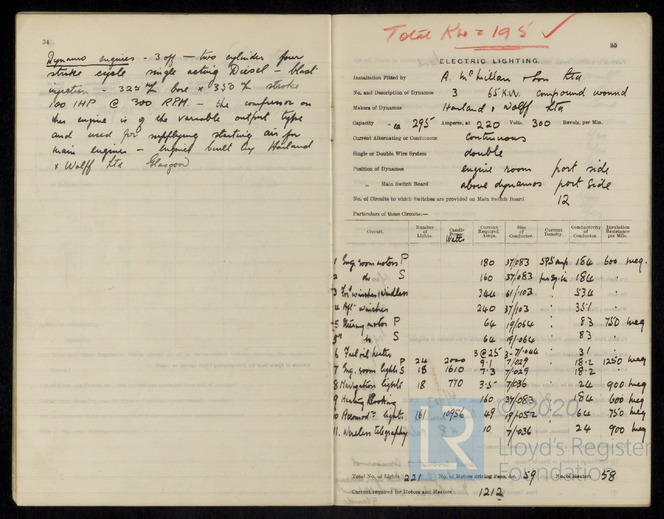 34
Dynamo engines - 3 off - two cylinder four
stroke cycle single acting Diesel - blast
injection - 325 bore × 350 stroke
100 IHP @ 300 RPM - the compressor on
this engine is of the variable output type
and used for supplying starting air for
main engine - engines built by Harland
& Wolff Ltd Glasgow
Total Kw = 195 ✓
35
ELECTRIC LIGHTING.
Installation Fitted by A. McMillan & Son Ltd
No. and Description of Dynamos 3 65 KW. compound wound
Makers of Dynamos Harland & Wolff Ltd
Capacity - ea 295 Amperes, at 220 Volts, 300 Revols. per Min.
Current Alternating or Continuous continuous
Single or Double Wire System double
Position of Dynamos engine room port side
" Main Switch Board above dynamos port side
No. of Circuits to which Switches are provided on Main Switch Board 12
Particulars of these Circuits:—
Circuit. Number of Lights. Candle Power. Watts Current Required. Amps. Size of Conductor. Current Density. Conductivity of Conductor. Insulation Resistance per Mile.
1 Eng. room motors P 180 37/083 595 amp 184 600 meg.
2 do S 160 37/083 per sq in 184 "
3 For'd winches & windlass 344 61/103 " 534 "
4 Aft winches 240 37/103 " 351 "
5 Steering motor P 64 19/064 " 83 750 meg
do S 64 19/064 " 83 "
6 Fuel oil heater 3@25 3-7/044 " 31 "
7 Eng. room lights P 24 2000 9.1 7/029 " 18.2 1250 meg
S 18 1610 7.3 7/029 " 18.2 "
8 Navigation lights 18 770 3.5 7/036 " 24 900 meg
9 160 37/083 " 184 600 meg
10 Accomodn lights 161 10956 49 19/052 " 64 750 meg
11. Wireless telegraphy 10 7/036 " 24 900 meg
Total No. of Lights 221 No. of Motors driving Fans, &c. 59 No. of Heaters 58
Current required for Motors and Heaters 1212
© 2020
LR
Lloyd's Register
Foundation